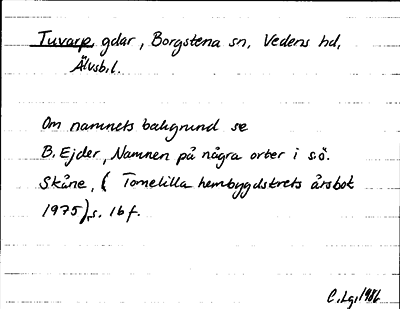 Tuvarp, gdar, Borgstena sn, Vedens hd,
Älvsb.l.
Om namnets bakgrund se
B. Ejder, Namnen på några orter i sö.
Skåne, (Tomelilla hembygdskrets årsbok
1975), s. 16 f.
C. Lg. 1986